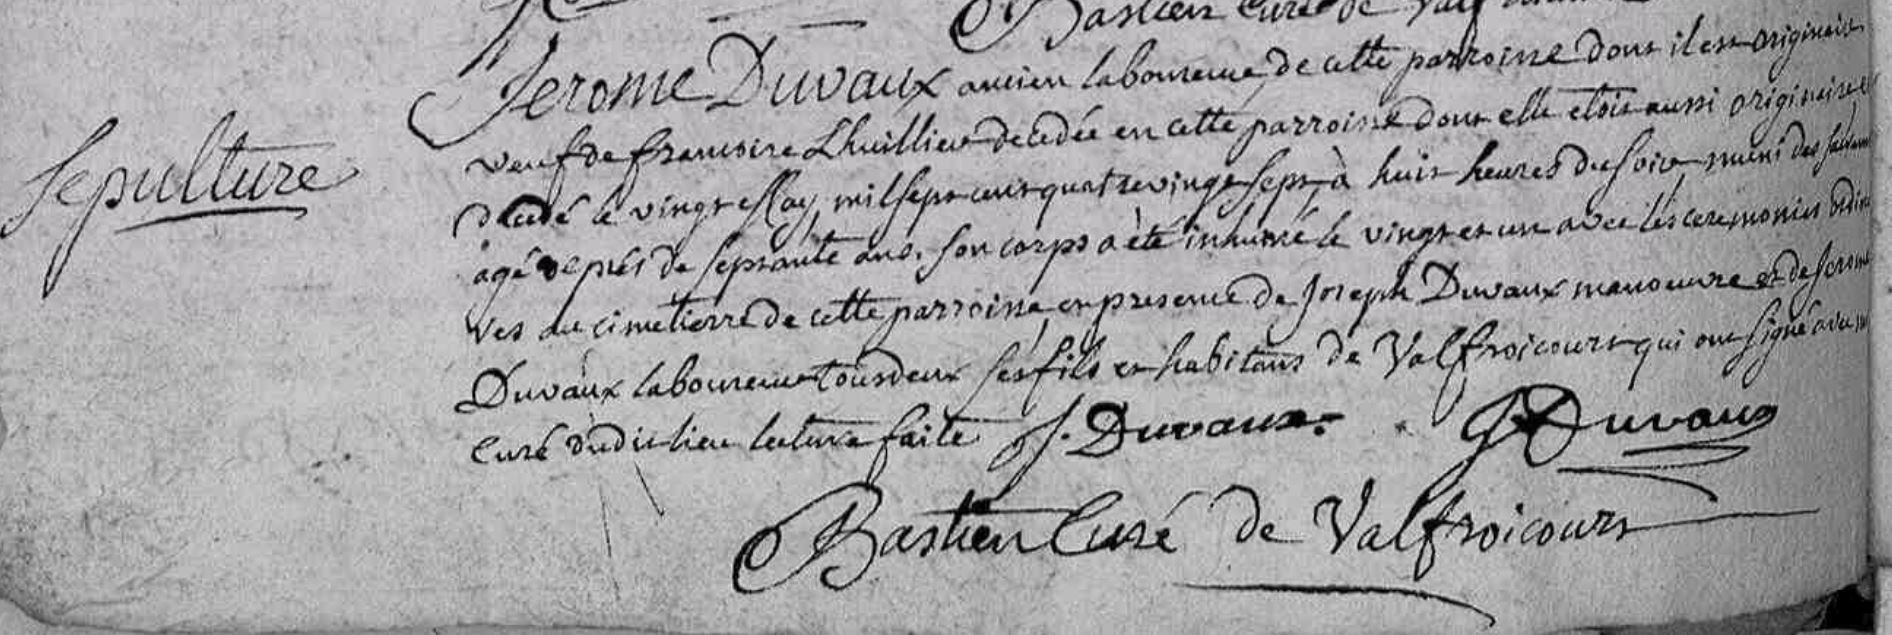 Bastien Curé de Valfroicourt
Sepulture
Jerome Duvaux ancien laboureur de cette parroisse dont il est originaire
veuf de francoise Lhuillier decedée en cette parroisse dont elle etoit aussi originaire
décédé le vingt May milsept cent quatrevingt sept, à huit heures du soir muni des
agé de prés de septante ans. son corps a été inhumé le vingt et un avec les ceremonies
ves au cimetierre de cette parroisse en presence de Joseph Duvaux manoeuvre et de Jerome
Duvaux laboureur tousdeux ses fils et habitans de Valfroicourt qui ont signé avec
Curé dudit lieu lecture faite J. Duvaux. J Duvaux
Bastien Curé de Valfroicourt